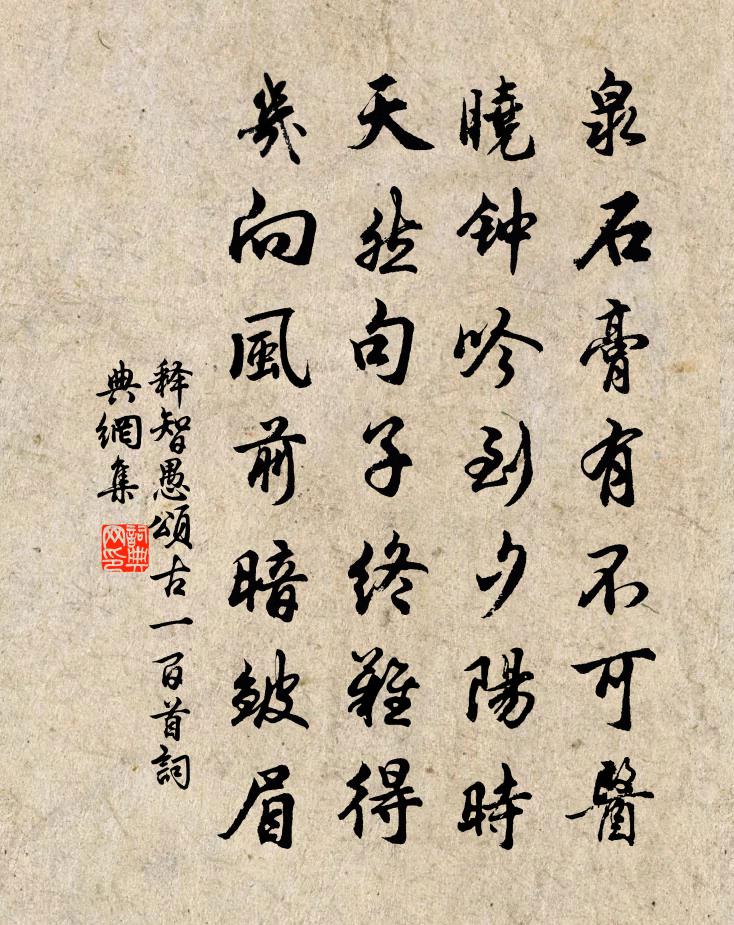 泉石膏有不可醫
曉钟吟到夕陽時
天然句子終難得
幾向風前暗皺眉
释智愚頌古一百首詞
典網集
詞典
网印